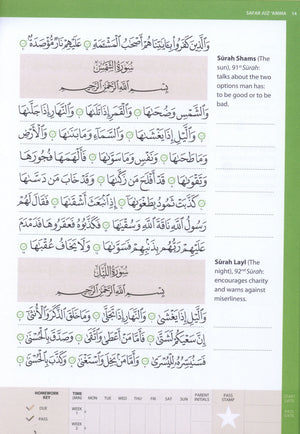 SAFAR AJZ' 'AMMA 14
وَٱلَّذِينَ كَفَرُوا۟ بِـَٔايَـٰتِنَا هُمْ أَصْحَـٰبُ ٱلْمَشْـَٔمَةِ عَلَيْهِمْ نَارٌ مُّؤْصَدَةٌۢ
سُورَةُ الشَّمْسِ
بِسْمِ ٱللَّهِ ٱلرَّحْمَـٰنِ ٱلرَّحِيمِ
وَٱلشَّمْسِ وَضُحَىٰهَا وَٱلْقَمَرِ إِذَا تَلَىٰهَا وَٱلنَّهَارِ إِذَا جَلَّىٰهَا
وَٱلَّيْلِ إِذَا يَغْشَىٰهَا وَٱلسَّمَآءِ وَمَا بَنَىٰهَا وَٱلْأَرْضِ
وَمَا طَحَىٰهَا وَنَفْسٍ وَمَا سَوَّىٰهَا فَأَلْهَمَهَا فُجُورَهَا
وَتَقْوَىٰهَا قَدْ أَفْلَحَ مَن زَكَّىٰهَا وَقَدْ خَابَ مَن دَسَّىٰهَا
كَذَّبَتْ ثَمُودُ بِطَغْوَىٰهَآ إِذِ ٱنۢبَعَثَ أَشْقَىٰهَا فَقَالَ لَهُمْ
رَسُولُ ٱللَّهِ نَاقَةَ ٱللَّهِ وَسُقْيَـٰهَا فَكَذَّبُوهُ فَعَقَرُوهَا فَدَمْدَمَ
عَلَيْهِمْ رَبُّهُم بِذَنۢبِهِمْ فَسَوَّىٰهَا وَلَا يَخَافُ عُقْبَـٰهَا
سُورَةُ اللَّيْلِ
بِسْمِ ٱللَّهِ ٱلرَّحْمَـٰنِ ٱلرَّحِيمِ
وَٱلَّيْلِ إِذَا يَغْشَىٰ وَٱلنَّهَارِ إِذَا تَجَلَّىٰ وَمَا خَلَقَ ٱلذَّكَرَ وَٱلْأُنثَىٰٓ
إِنَّ سَعْيَكُمْ لَشَتَّىٰ فَأَمَّا مَنْ أَعْطَىٰ وَٱتَّقَىٰ وَصَدَّقَ بِٱلْحُسْنَىٰ
فَسَنُيَسِّرُهُۥ لِلْيُسْرَىٰ وَأَمَّا مَنۢ بَخِلَ وَٱسْتَغْنَىٰ وَكَذَّبَ بِٱلْحُسْنَىٰ
Sūrah Shams (The
sun), 91st Sūrah:
talks about the two
options man has:
to be good or to be
bad.
Sūrah Layl (The
night), 92nd Sūrah:
encourages charity
and warns against
miserliness.
HOMEWORK KEY
DUE
PASS
TIME (MIN) MON TUE WED THU FRI SAT SUN
WEEK 1
WEEK 2
PARENT INITIALS
PASS STAMP
START DATE
PASS DATE